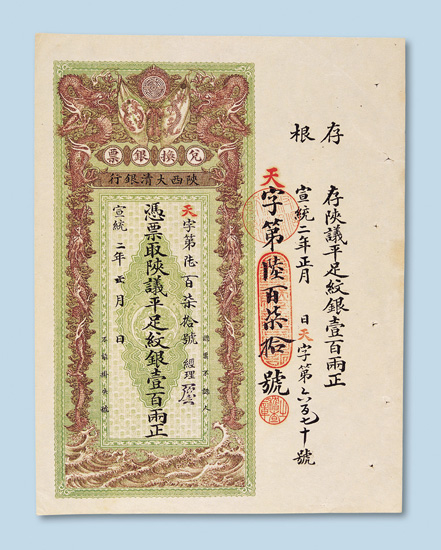 存根
存陝議平足紋銀壹百兩正
宣統二年正月 日天字第六百七十號
天字第陸百柒拾號
兌換銀票
陝西大清銀行
認票不認人
天字第陸百柒拾號 經理
憑票取陝議平足紋銀壹百兩正
宣統二年正月 日